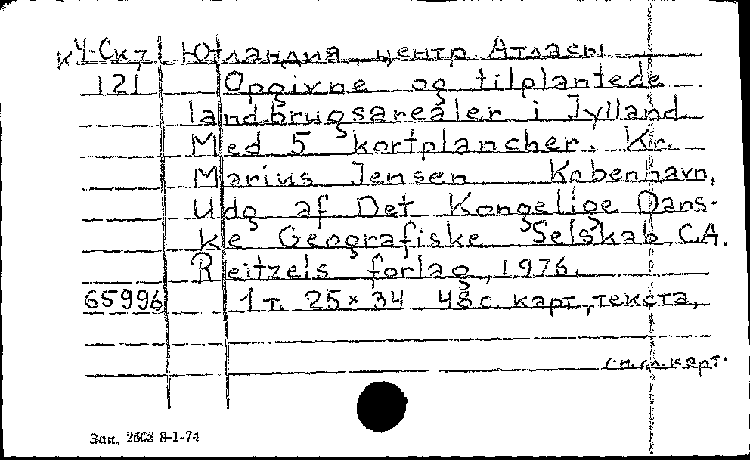 КЧ-Скл Ютландия центр Атласы
121 Opgivne og tilplantede
landbrugsarealer i Jylland
Med 5 kortplancher. Kr.
Marius Jensen København,
Udg af Det Kongelige Dans-
ke Geografiske Selskab C.A.
Reitzels forlag, 1976.
65996 1 т. 25×34 48 с. карт, текста,
карт.
Зак. 2603 8-1-74